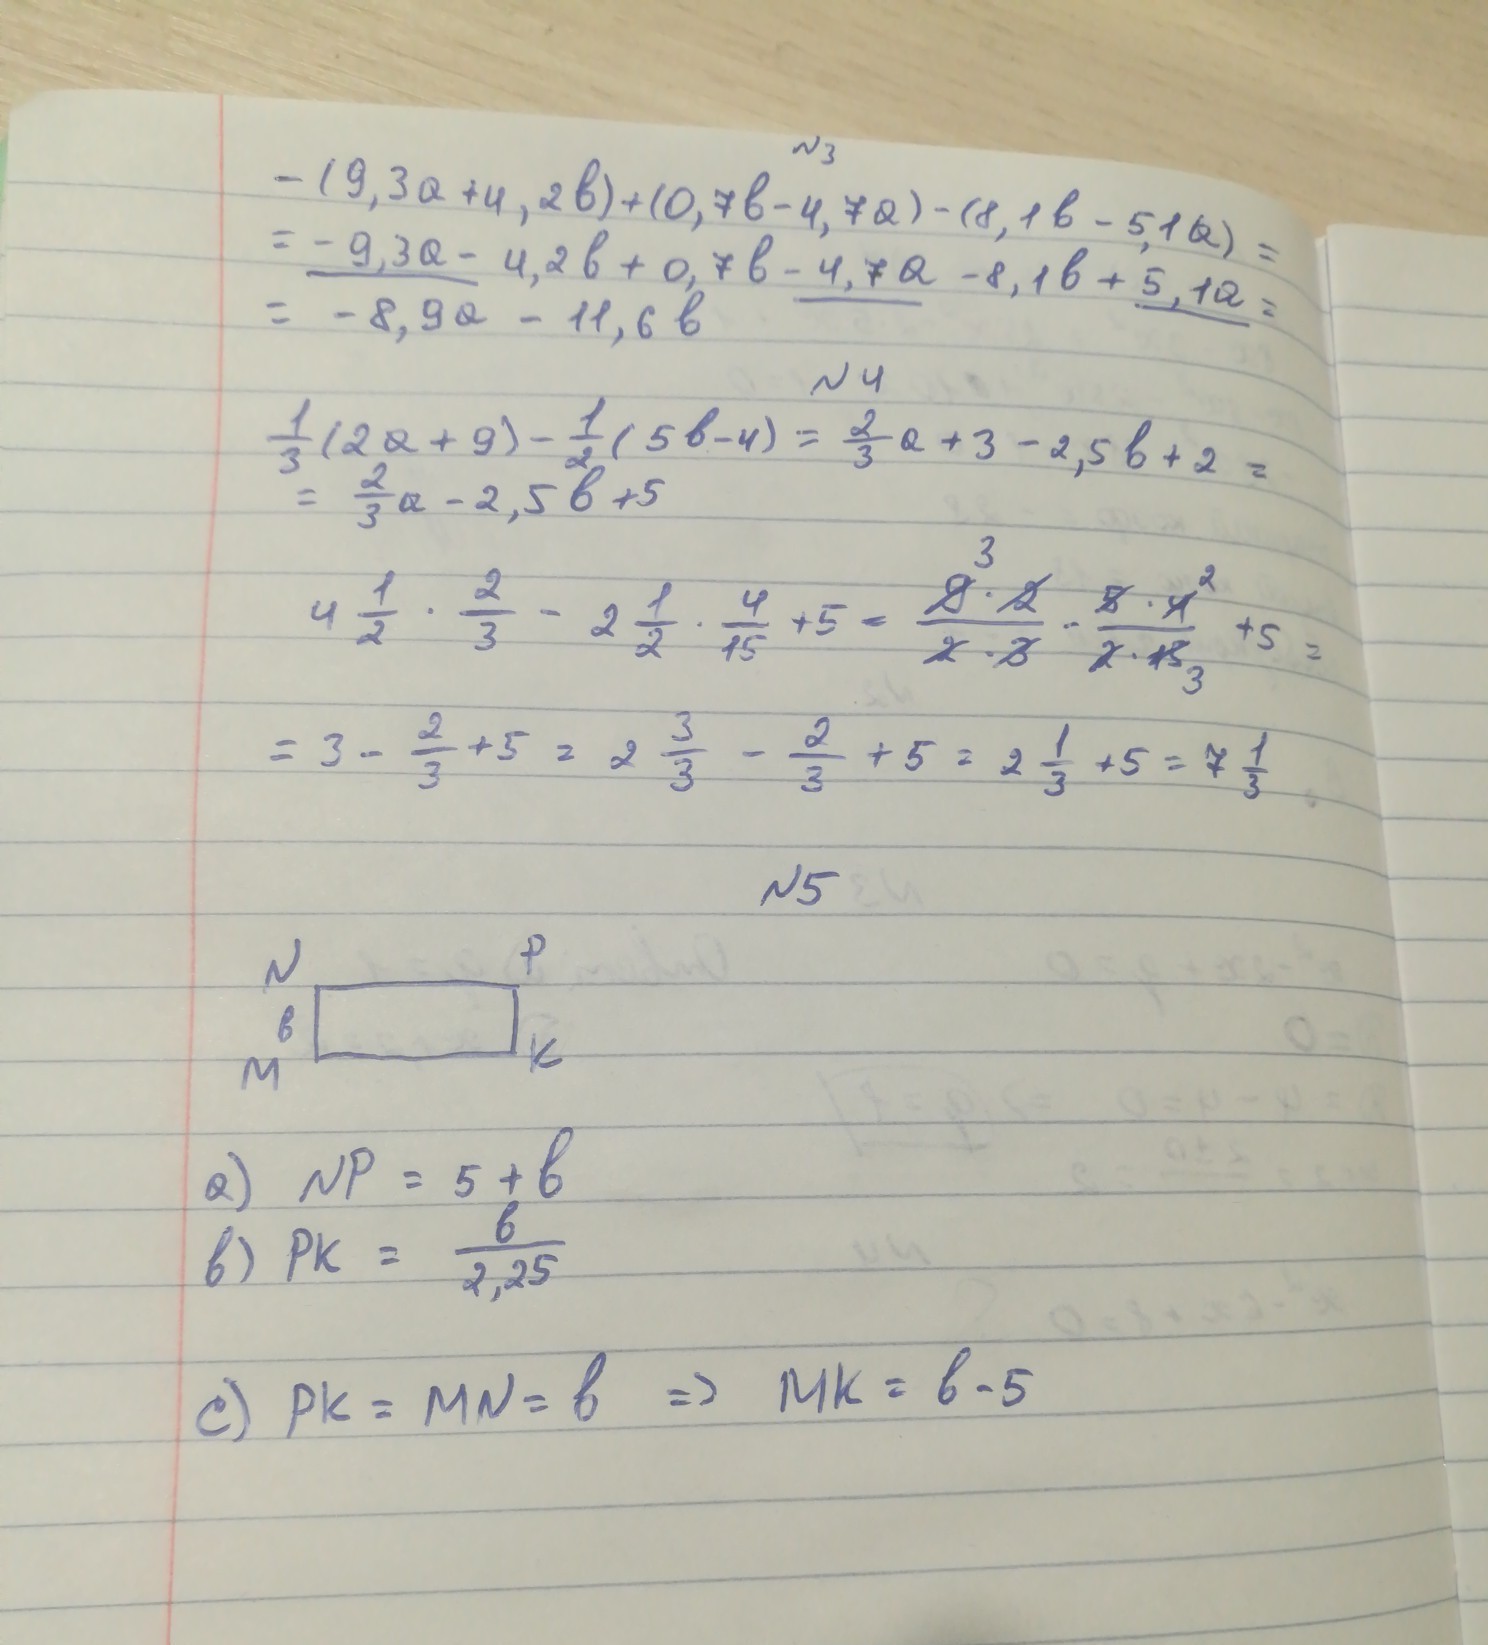 N3
-(9,3a+4,2b)+(0,7b-4,7a)-(8,1b-5,1a)=
=-9,3a-4,2b+0,7b-4,7a-8,1b+5,1a=
= -8,9a - 11,6b
N4
1/3(2a+9)-1/2(5b-4)=2/3a+3-2,5b+2=
= 2/3a-2,5b+5
4 1/2 · 2/3 - 2 1/2 · 4/15 +5 = 9 3 · 2/2 · 3 - 5 · 4 2/2 · 15 3 +5 =
= 3 - 2/3 +5 = 2 3/3 - 2/3 +5 = 2 1/3 +5 = 7 1/3
N5
N P
b
M K
a) NP = 5+b
b) PK = b/2,25
c) PK = MN = b => MK = b-5